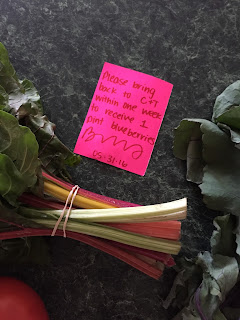 Please bring
back to C+T
within one week
to receive 1
pint blueberries
05-31-16